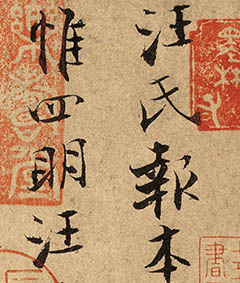 汪氏報本
惟四明汪